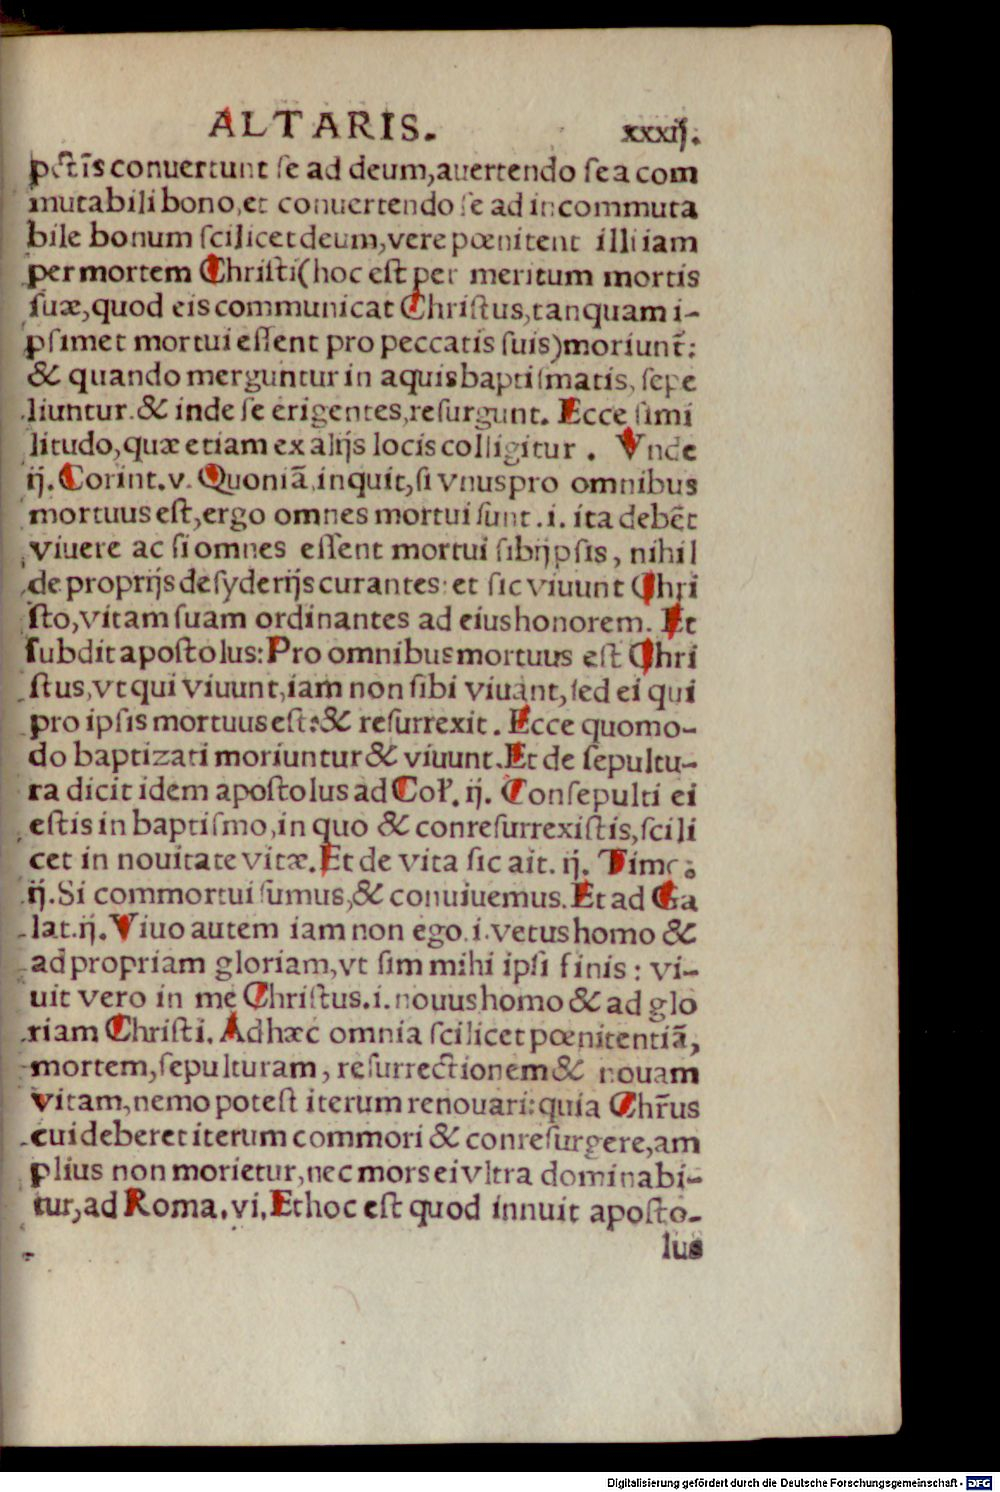 ALTARIS. xxxij.
pctīs conuertunt se ad deum, auertendo se a com
mutabili bono, et conuertendo se ad incommuta
bile bonum scilicet deum, vere pœnitent illi iam
per mortem Christi (hoc est per meritum mortis
suæ, quod eis communicat Christus, tanquam i-
psimet mortui essent pro peccatis suis) moriunt̃:
& quando merguntur in aquis baptismatis, sepe
liuntur. & inde se erigentes, resurgunt. Ecce simi
litudo, quæ etiam ex alijs locis colligitur. Vnde
ij. Corint. v. Quoniã, inquit, si vnus pro omnibus
mortuus est, ergo omnes mortui sunt .i. ita debēt
viuere ac si omnes essent mortui sibijpsis, nihil
de proprijs desyderijs curantes: et sic viuunt Chri
sto, vitam suam ordinantes ad eius honorem. Et
subdit apostolus: Pro omnibus mortuus est Chri
stus, vt qui viuunt, iam non sibi viuant, sed ei qui
pro ipsis mortuus est: & resurrexit. Ecce quomo-
do baptizati moriuntur & viuunt. Et de sepultu-
ra dicit idem apostolus ad Col̃. ij. Consepulti ei
estis in baptismo, in quo & conresurrexistis, scili
cet in nouitate vitæ. Et de vita sic ait. ij. Timo.
ij. Si commortui sumus, & conuiuemus. Et ad Ga
lat. ij. Viuo autem iam non ego .i. vetus homo &
ad propriam gloriam, vt sim mihi ipsi finis: vi-
uit vero in me Christus .i. nouus homo & ad glo
riam Christi. Ad hæc omnia scilicet pœnitentiã,
mortem, sepulturam, resurrectionem & nouam
vitam, nemo potest iterum renouari: quia Chr̃us
cui deberet iterum commori & conresurgere, am
plius non morietur, nec mors ei vltra dominabi-
tur, ad Roma. vi. Et hoc est quod innuit aposto-
lus
Digitalisierung gefördert durch die Deutsche Forschungsgemeinschaft - DFG